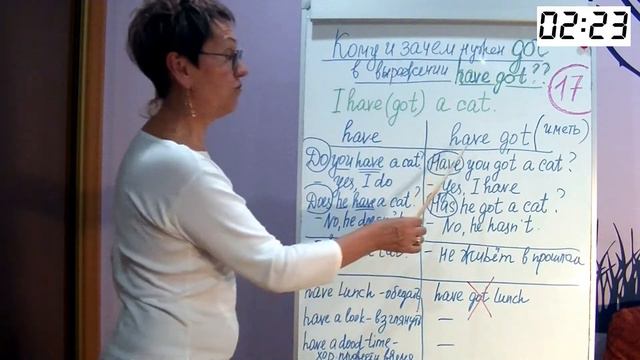 02:23
Кому и зачем нужен got
в выражении have got??
17
I have (got) a cat.
have
have got (иметь)
Do you have a cat?
- yes, I do
Does he have a cat?
- No, he doesn't
Have you got a cat?
- Yes, I have
Has he got a cat?
- No, he hasn't.
- не живёт в прошлом
have lunch - обедать
have got lunch
have a look - взглянуть
-
have a good time -
-
хор. провести время